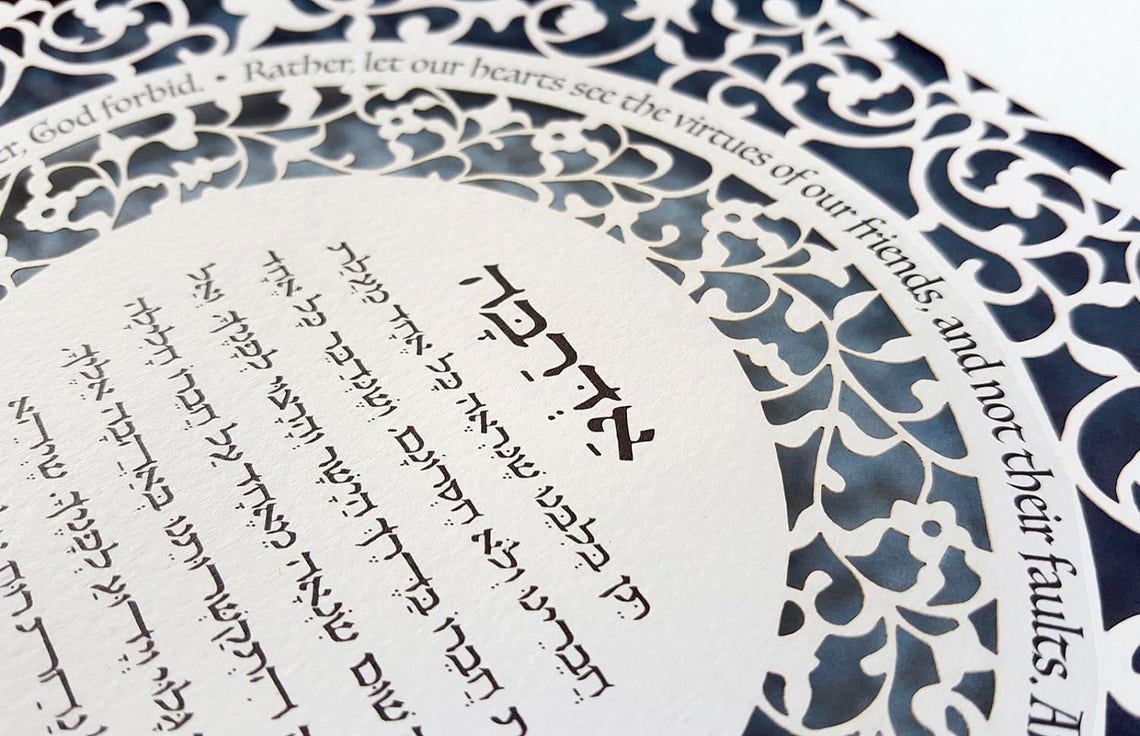 er, God forbid. • Rather, let our hearts see the virtues of our friends, and not their faults. A
אדרבה
תן בלבנו שנראה כל אחד מעלת
חברינו ולא חסרונם ושנדבר כל אחד
חברו בדרך הישר והרצוי לפניך ואל
שום שנאה מאחד על חברו חלילה
התקשרותנו באהבה אליך
וידוע לפניך